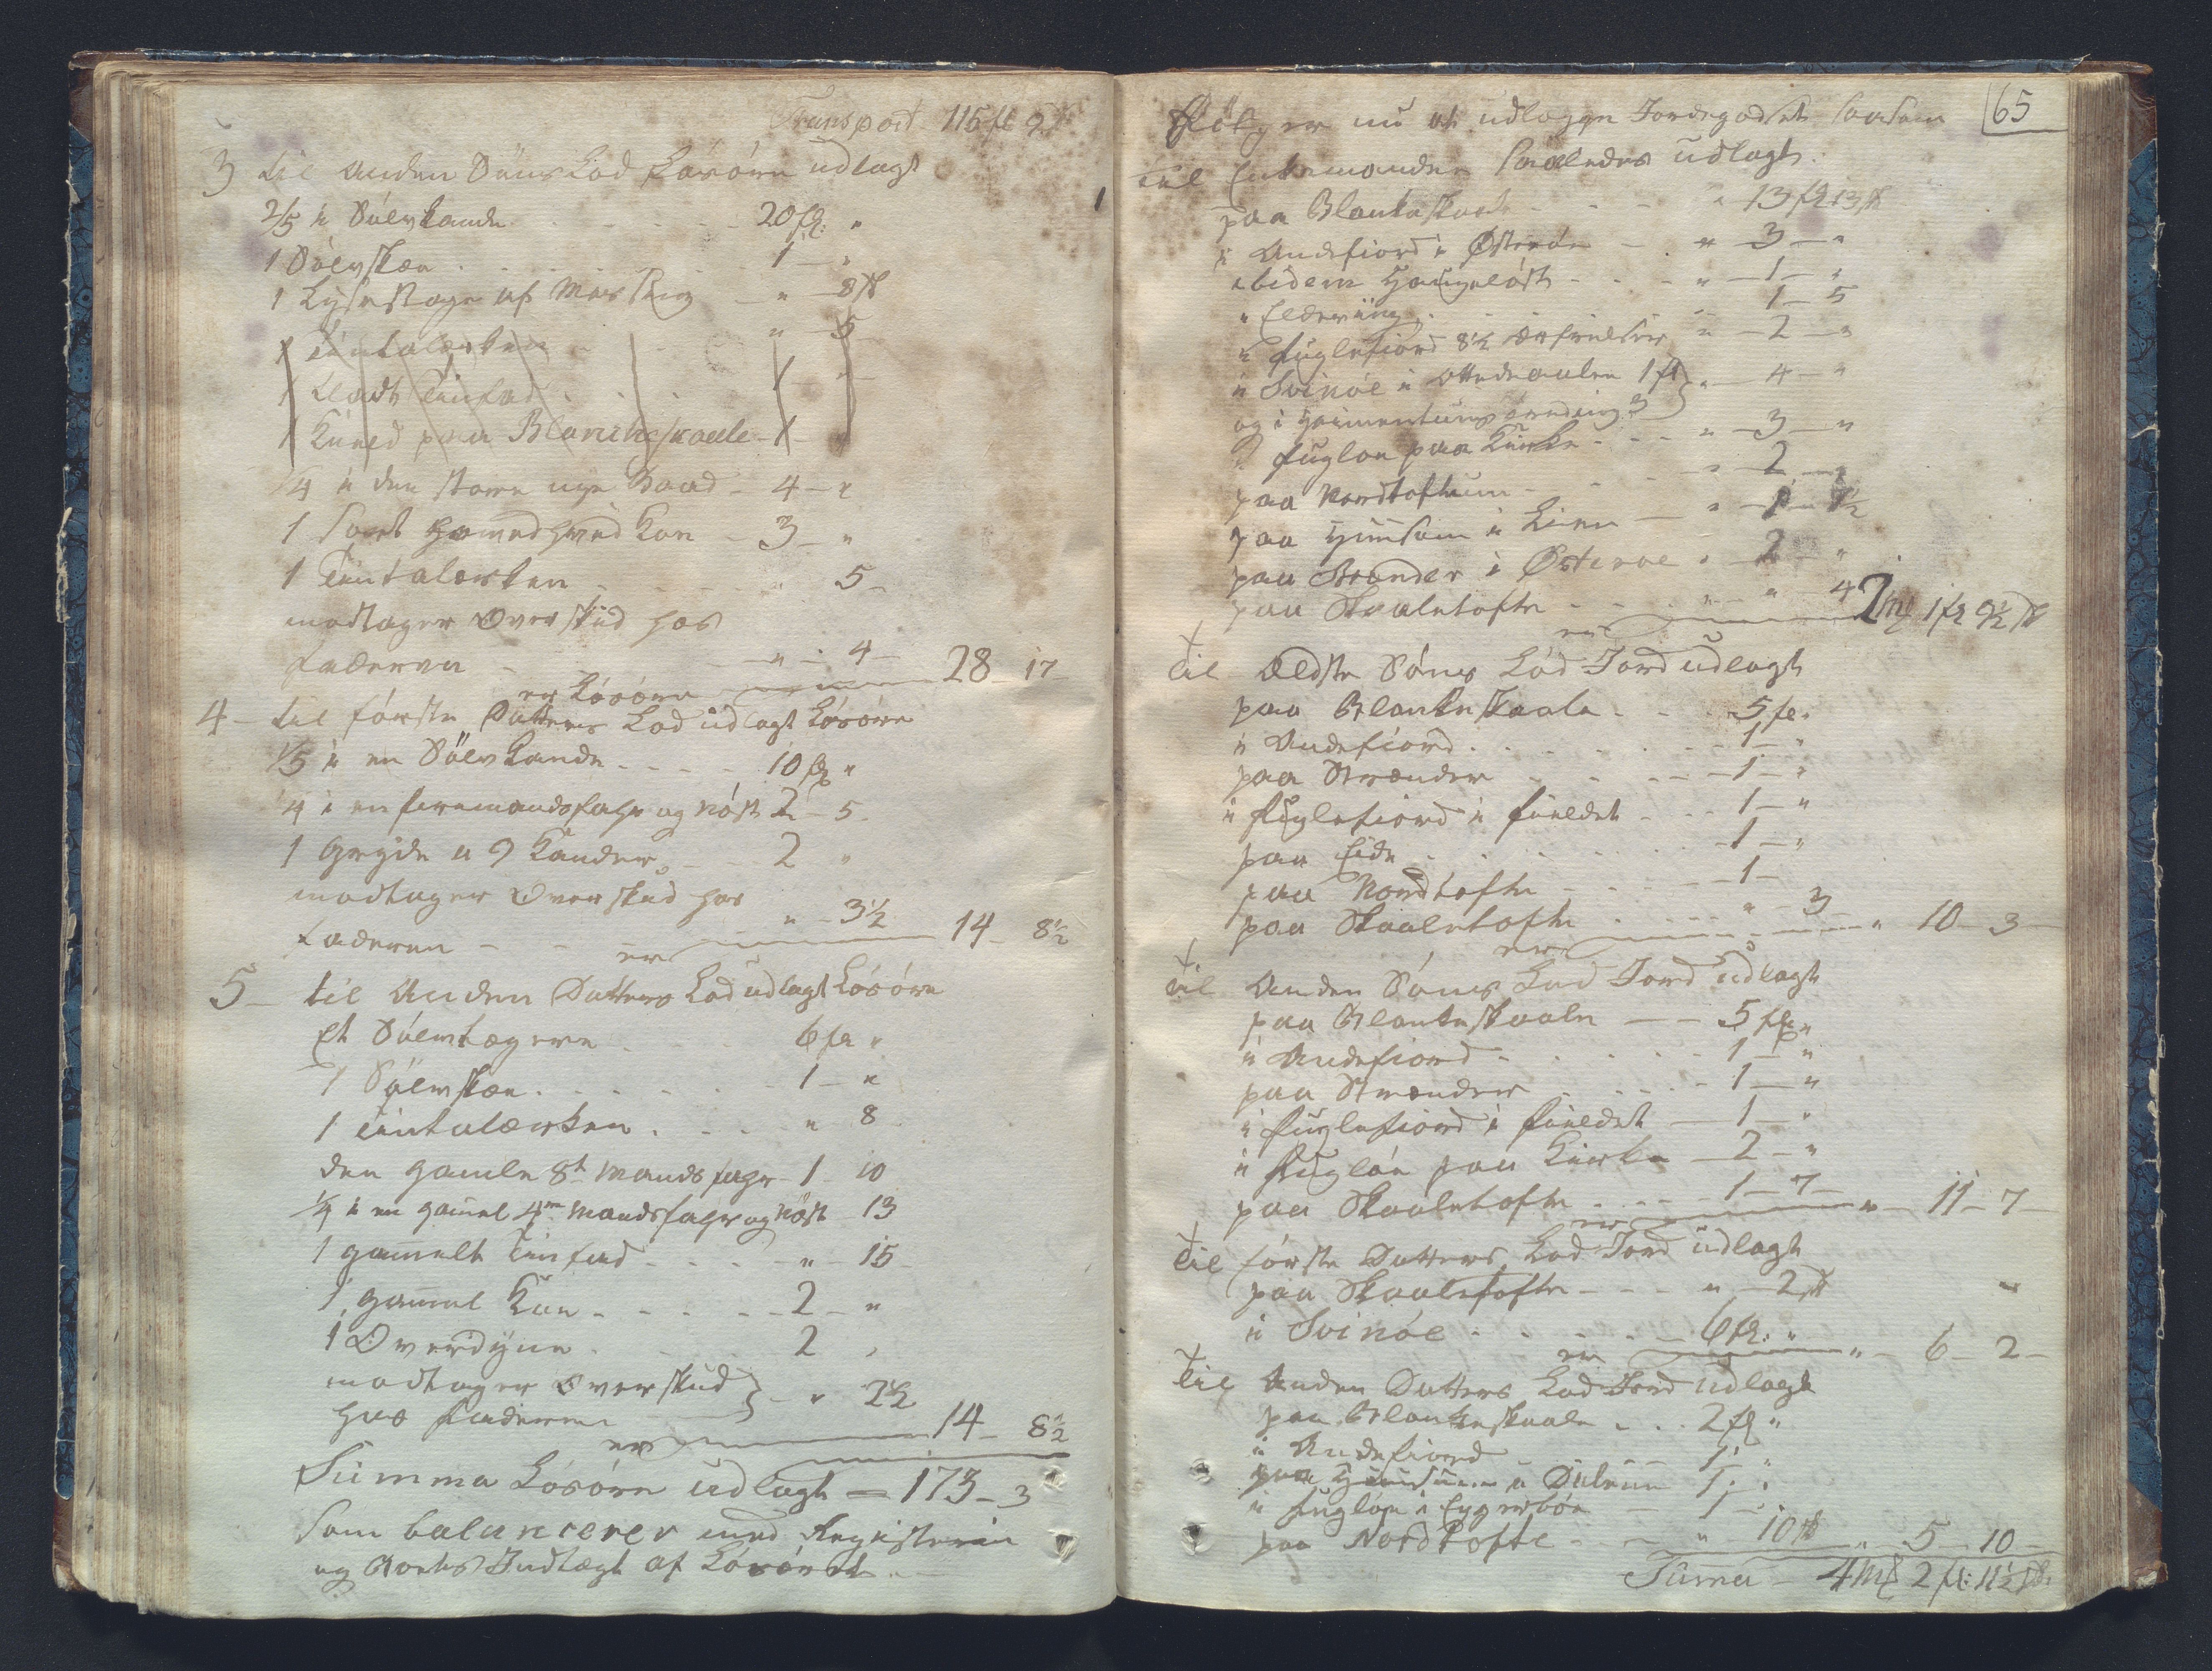 Transport 115 fl 9 s
3 til Anden Søns Lod Løsøre udlagt
2/5 i Sølvkande 20 fl: "
1 Sølvskee 1 — "
1 Lysestage af Messing — " — 8 s
1 Tintalerken " — 5
1 Ladt Tinfad 1 "
1 Kuned paa Blanchskaale — 1 — "
1/4 i den store nye Baad — 4 — "
1 sort hvid Koe — 3 — "
1 Tintalerken 5 —
modtager Overskud hos
Faderen — " — 4 —
er Løsøre 28 — 17
4 — til første Datters Lod udlagt Løsøre
1/5 i en Sølvkande 10 fl "
1/4 i en firemandsfahr og Nøst 2 — 5
1 Gryde a 9 Kander 2 "
modtager Overskud hos
Faderen — " — 3½
er 14 — 8½
5 — til Anden Datters Lod udlagt Løsøre
Et Sølvbægere 6 fl "
1 Sølvskee 1 — "
1 Tintalerken " 8
den gamle 8t Mandsfahr — 1 — 10
1/4 i en gamel 4re Mandsfahr og Nøst — 13
1 gamelt Tinfad " — 15
1 gamel Koe 2 — "
1 Overdyne 2 "
modtager Overskud
hos Faderen } — " 2½
er 14 — 8½
Summa Løsøre udlagt — 173 — 3
Som balancerer med Registerin
og Boets Indtægt af Løsøret
65
Følger nu at udlægge Jordegodset saasom
til Enkemanden saaledes udlagt:
paa Blankeskaale " 13 fl 13 s
i Andefiord i Østerøe — " — 3 — "
ibidem — " — 1 — "
" Elduvig 1 — 5
i Fuglefiord 8½ " — 2 — "
i Svinøe i 1 fl
og i 3 } " — 4 — "
i Fugløe paa Kirke — " — 3 — "
paa Nordtoftum — " — 2 — "
paa Husum i Lien — " — 1 — 7½
paa Strander i Østeroe " 2 — "
paa Skaaletofte — " — " — 4
er 2 mk 1 fl 9½ s
til Ældste Søns Lod Jord udlagt
paa Blankeskaale 5 fl.
i Andefiord 1 — "
paa Strænder — 1 — "
i Fuglefiord i Fieldet 1 — "
paa Eide 1 — "
paa Nordtofte — 1 —
paa Skaaletofte " — 3
er " 10 — 3
til Anden Søns Lod Jord udlagt
paa Blankeskaale — 5 fl "
i Andefiord 1 — "
paa Strænder 1 — "
i Fuglefiord i Fieldet — 1 — "
i Fugløe paa Kirke — 2 — "
paa Skaaletofte 1 — 7 —
er " — 11 — 7
til første Datters Lod Jord udlagt
paa Skaaletofte — " — 2 s
i Svinöe 6 fl. "
er " — 6 — 2 —
til Anden Datters Lod Jord udlagt
paa Blankeskaale 2 fl "
i Andefiord 1 "
paa Husum i 1 "
i Fugløe i 1 "
paa NordTofte — " 10 s
" 5 — 10
Suma — 4 mk 2 fl: 11½ s